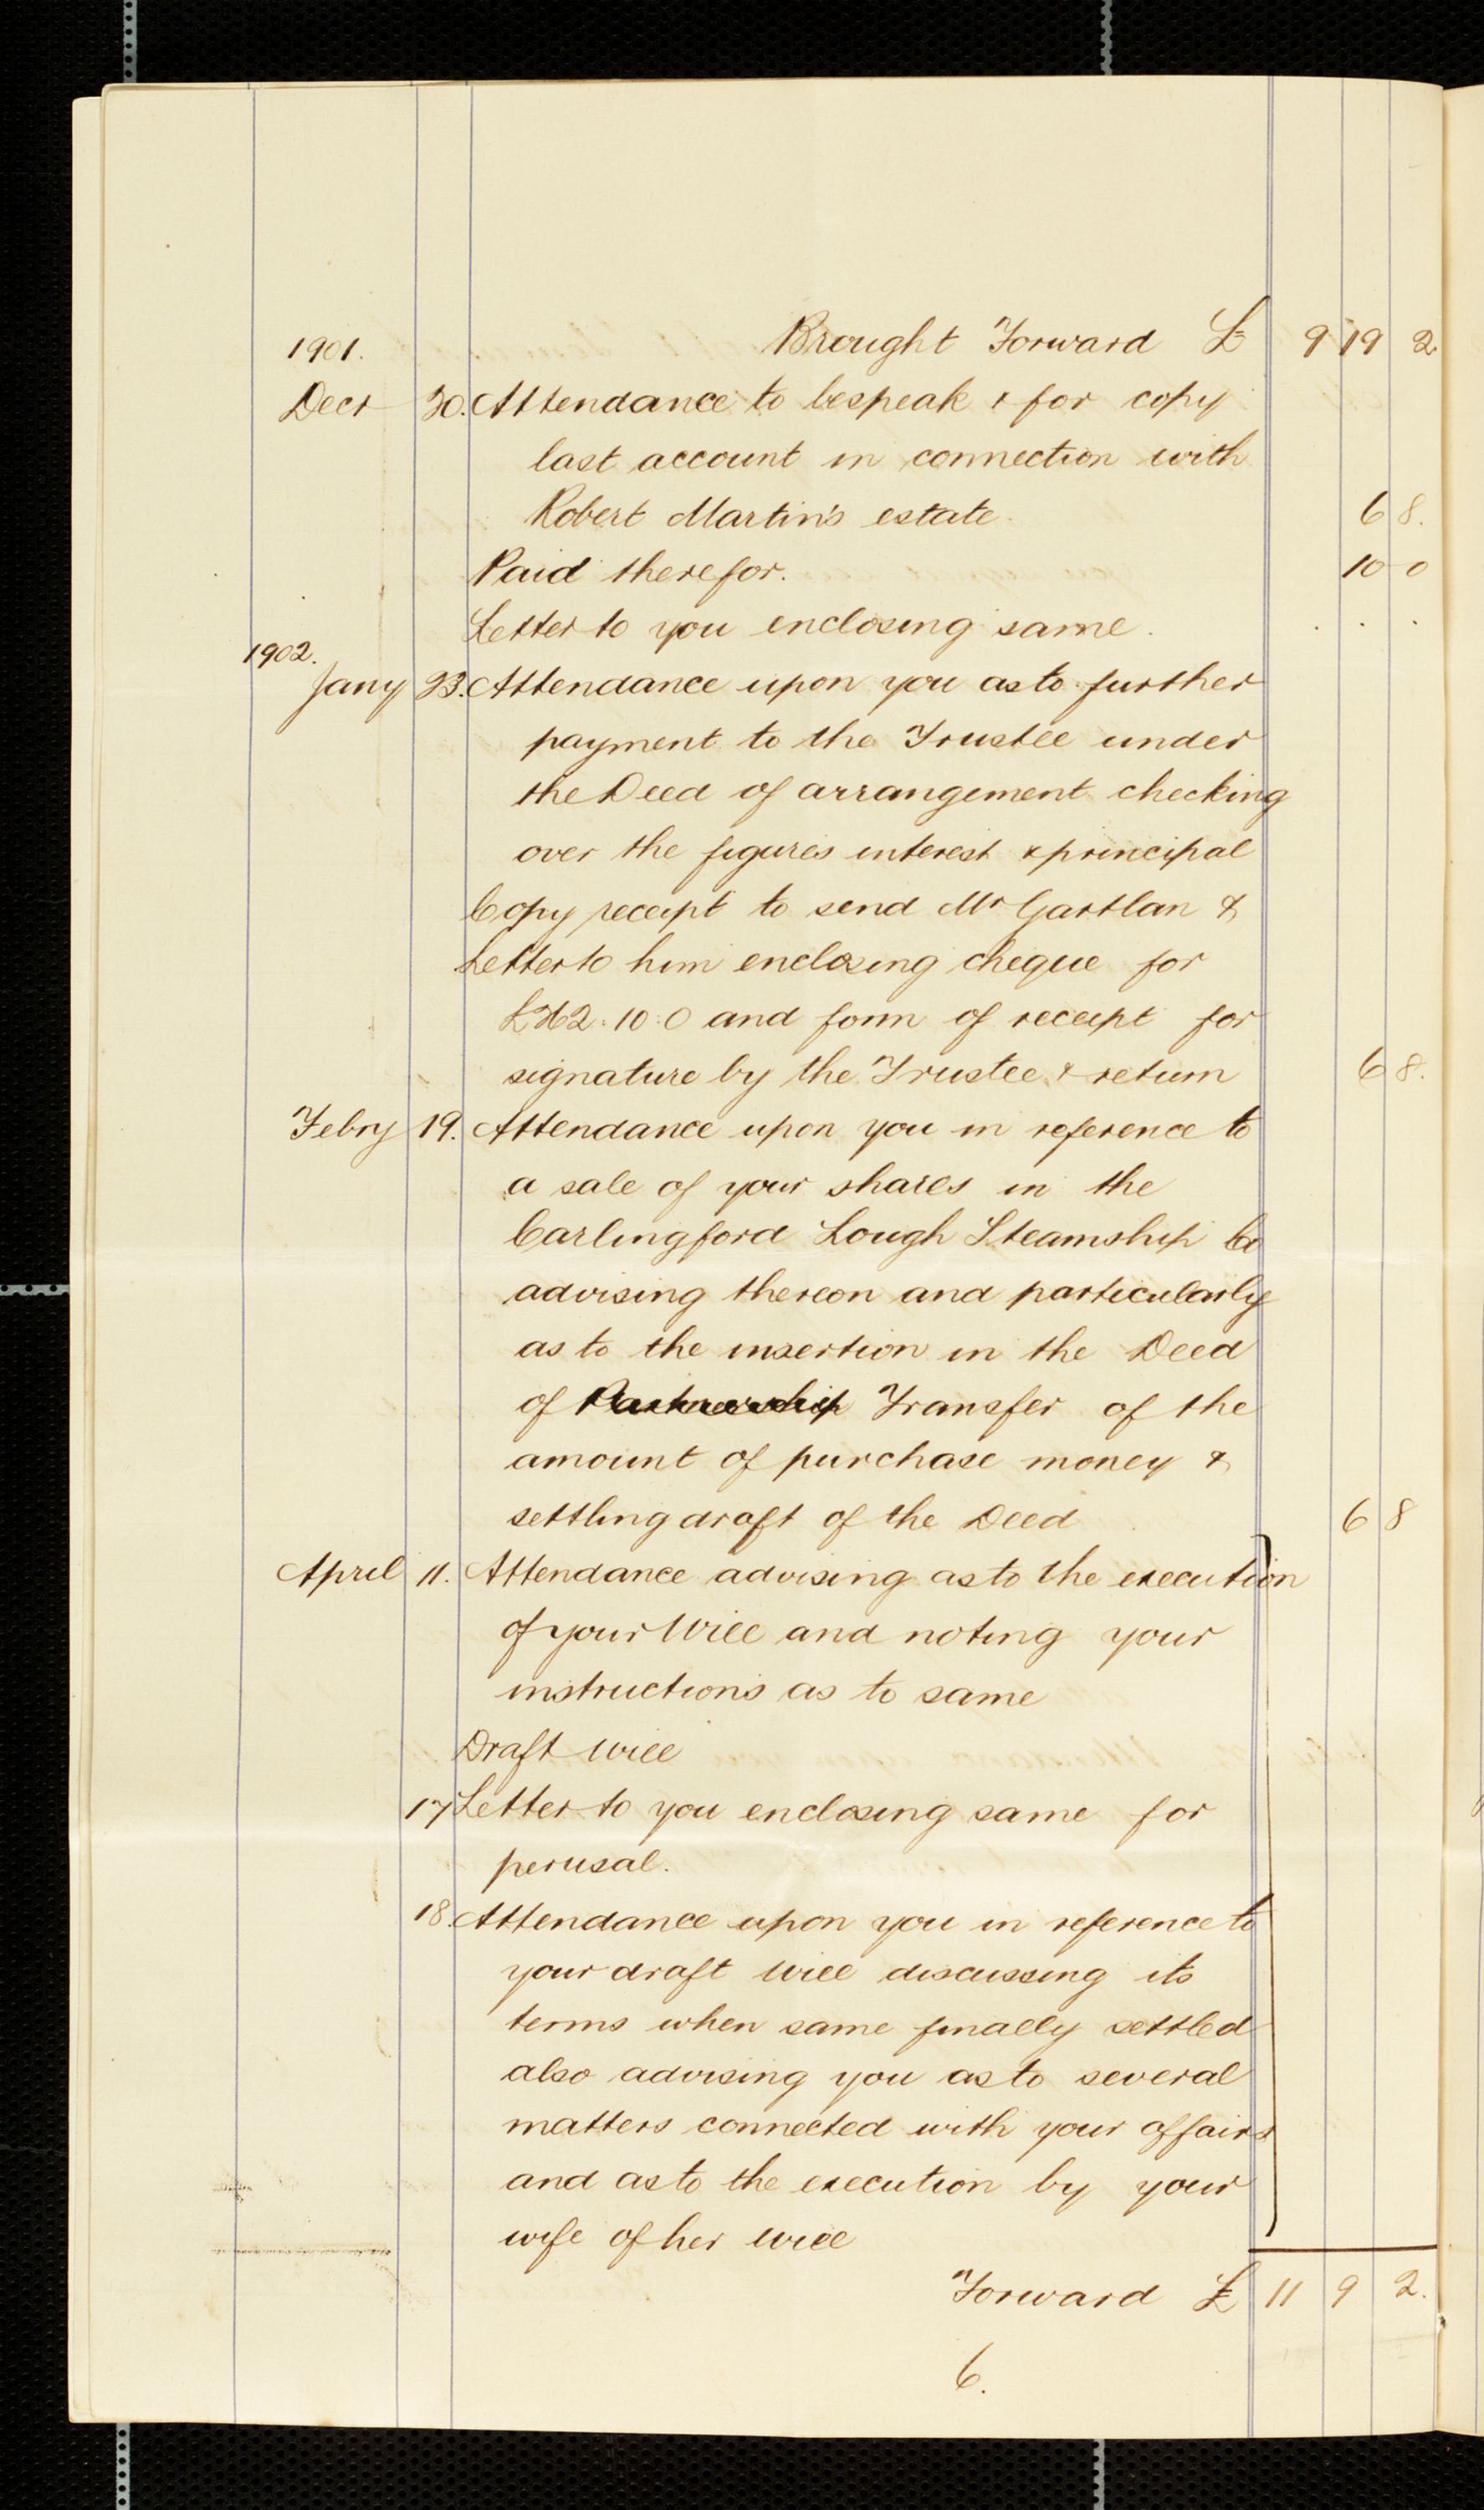 1901. Brought Forward £ 9 19 2
Decr 30. Attendance to bespeak & for copy
last account in connection with
Robert Martin's estate. 6 8.
Paid therefor. 10 0
Letter to you enclosing same. . . .
1902.
Jany 23. Attendance upon you as to further
payment to the Trustee under
the Deed of arrangement checking
over the figures interest & principal
Copy receipt to send Mr Gartlan &
Letter to him enclosing cheque for
10:0 and form of receipt for
signature by the Trustee & return 6 8.
Febry 19. Attendance upon you in reference to
a sale of your shares in the
Carlingford Lough Steamship Co
advising thereon and particularly
as to the insertion in the Deed
of Partnership Transfer of the
amount of purchase money &
settling draft of the Deed 6 8
April 11. Attendance advising as to the execution
of your Will and noting your
instructions as to same
Draft Will
17 Letter to you enclosing same for
perusal.
18. Attendance upon you in reference to
your draft Will discussing its
terms when same finally settled
also advising you as to several
matters connected with your affairs
and as to the execution by your
wife of her Will
Forward £ 11 9 2.
6.